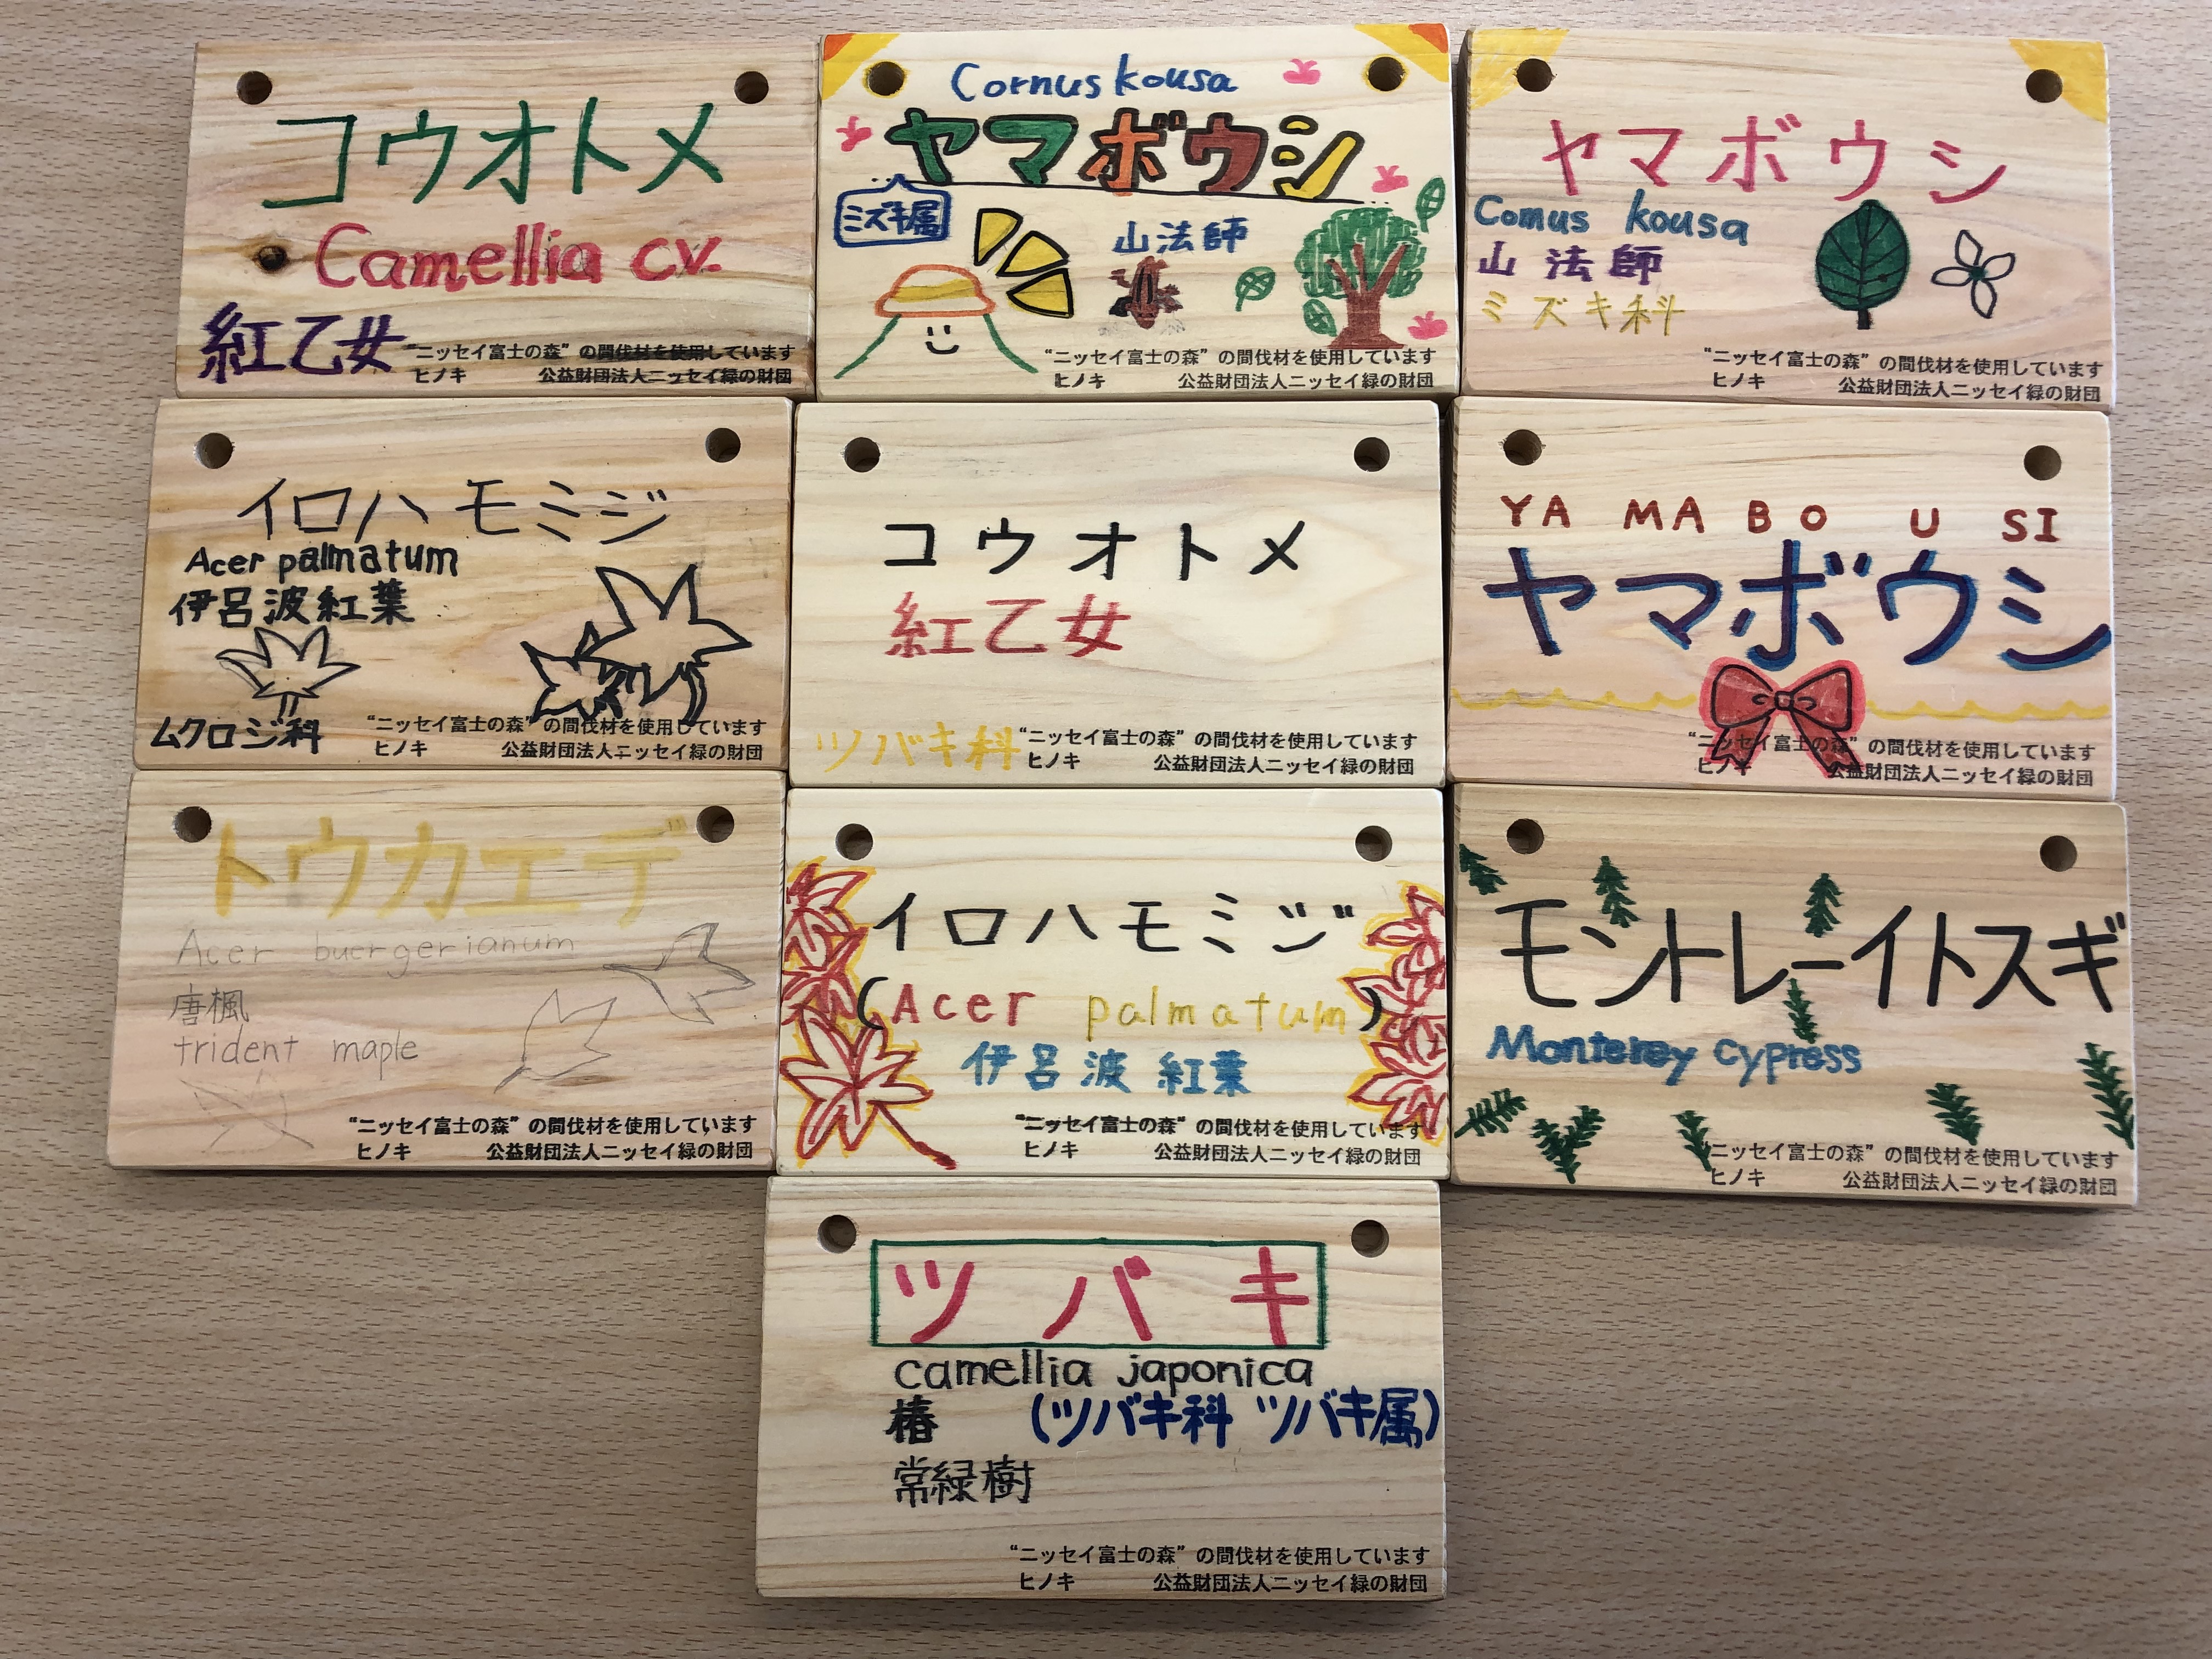 コウオトメ
Camellia cv.
紅乙女
“ニッセイ富士の森”の間伐材を使用しています
ヒノキ 公益財団法人ニッセイ緑の財団
Cornus kousa
ヤマボウシ
ミズキ属
山法師
“ニッセイ富士の森”の間伐材を使用しています
ヒノキ 公益財団法人ニッセイ緑の財団
ヤマボウシ
Cornus kousa
山法師
ミズキ科
“ニッセイ富士の森”の間伐材を使用しています
ヒノキ 公益財団法人ニッセイ緑の財団
イロハモミジ
Acer palmatum
伊呂波紅葉
ムクロジ科
“ニッセイ富士の森”の間伐材を使用しています
ヒノキ 公益財団法人ニッセイ緑の財団
コウオトメ
紅乙女
ツバキ科
“ニッセイ富士の森”の間伐材を使用しています
ヒノキ 公益財団法人ニッセイ緑の財団
YA MA BO U SI
ヤマボウシ
“ニッセイ富士の森”の間伐材を使用しています
ヒノキ 公益財団法人ニッセイ緑の財団
トウカエデ
Acer buergerianum
唐楓
trident maple
“ニッセイ富士の森”の間伐材を使用しています
ヒノキ 公益財団法人ニッセイ緑の財団
イロハモミジ
(Acer palmatum)
伊呂波紅葉
“ニッセイ富士の森”の間伐材を使用しています
ヒノキ 公益財団法人ニッセイ緑の財団
モントレーイトスギ
Monterey cypress
ニッセイ富士の森”の間伐材を使用しています
ヒノキ 公益財団法人ニッセイ緑の財団
ツバキ
camellia japonica
椿 (ツバキ科 ツバキ属)
常緑樹
“ニッセイ富士の森”の間伐材を使用しています
ヒノキ 公益財団法人ニッセイ緑の財団